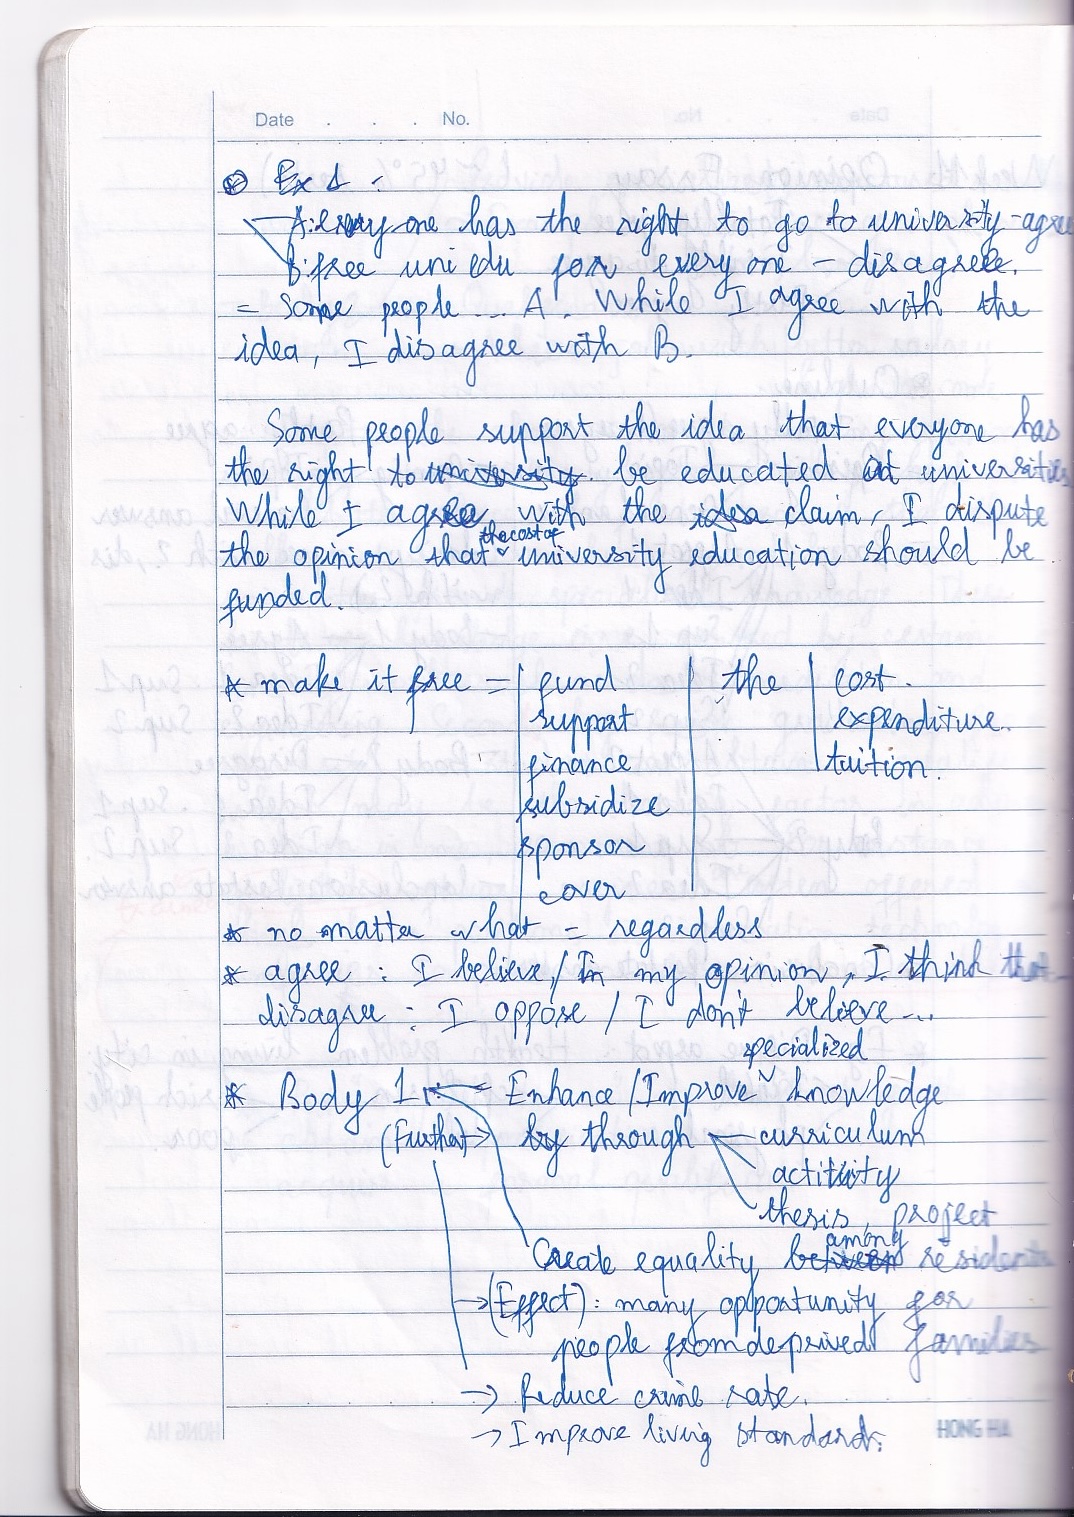 Date . . . No.
Ex 1 :
A: everyone has the right to go to university - agree
B: free uni edu for everyone - disagree.
= Some people ... A. While I agree with the
idea, I disagree with B.
Some people support the idea that everyone has
the right to university be educated at universities
While I agree with the idea claim, I dispute
the opinion that the cost of university education should be
funded.
* make it free = fund the cost.
support expenditure.
finance tuition.
subsidize
sponsor
cover
* no matter what = regardless
* agree : I believe / In my opinion, I think that
disagree : I oppose / I don't believe ...
specialized
* Body 1 Enhance / Improve knowledge
(Further) by through curriculum
activity
thesis, project
among
Create equality between residents
→ (Effect) : many opportunity for
people from deprived families
→ Reduce crime rate.
→ Improve living standard.
HONG HA